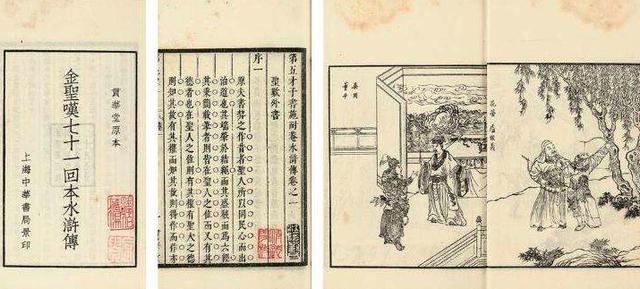 貫華堂原本
金聖嘆七十一回本水滸傳
上海中華書局景印
第五才子書施耐菴水滸傳卷之一
聖歎外書
序一
原夫書契之作昔者聖人所以同民心而出
治道也其端肇於結繩而其盛殽而為六經
其秉簡載筆者則皆在聖人之位而又有其
德者也在聖人之位則有其權有聖人之德
則知其故有其權而知其故則得作而作亦
花榮 盧俊義